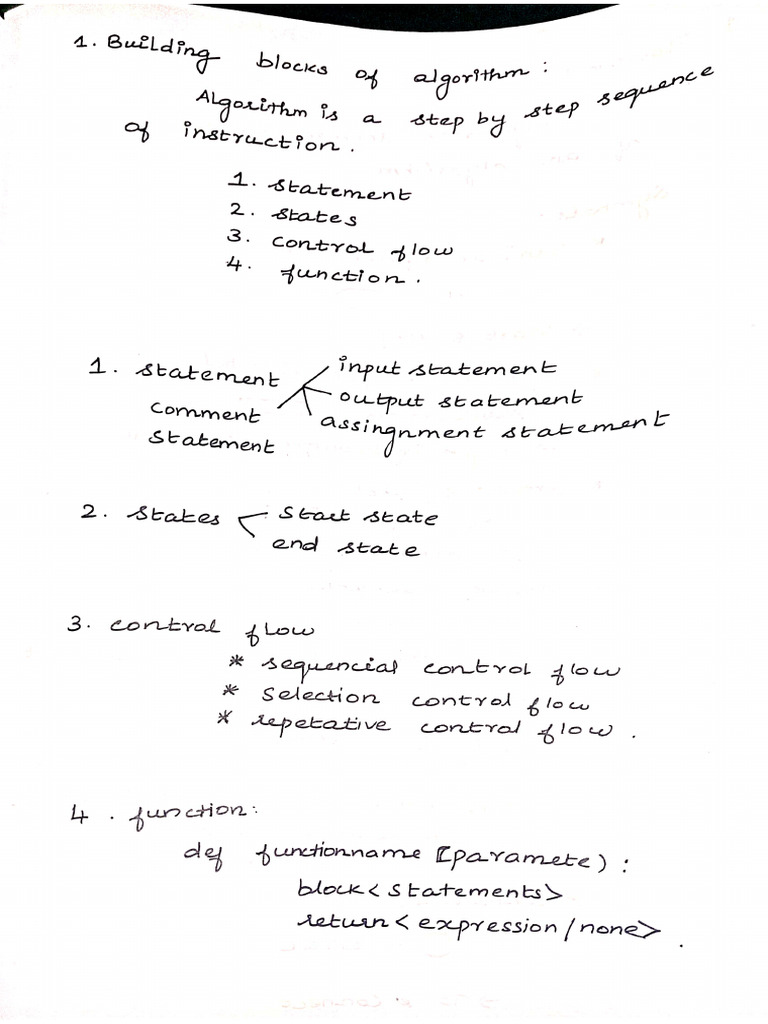 1. Building blocks of algorithm:
Algorithm is a step by step sequence
of instruction.
1. statement
2. states
3. control flow
4. function.
1. statement
input statement
output statement
assingnment statement
comment
statement
2. states
start state
end state
3. control flow
* sequencial control flow
* selection control flow
* repetative control flow.
4. function:
def functionname (paramete):
block<statements>
return<expression/none>.